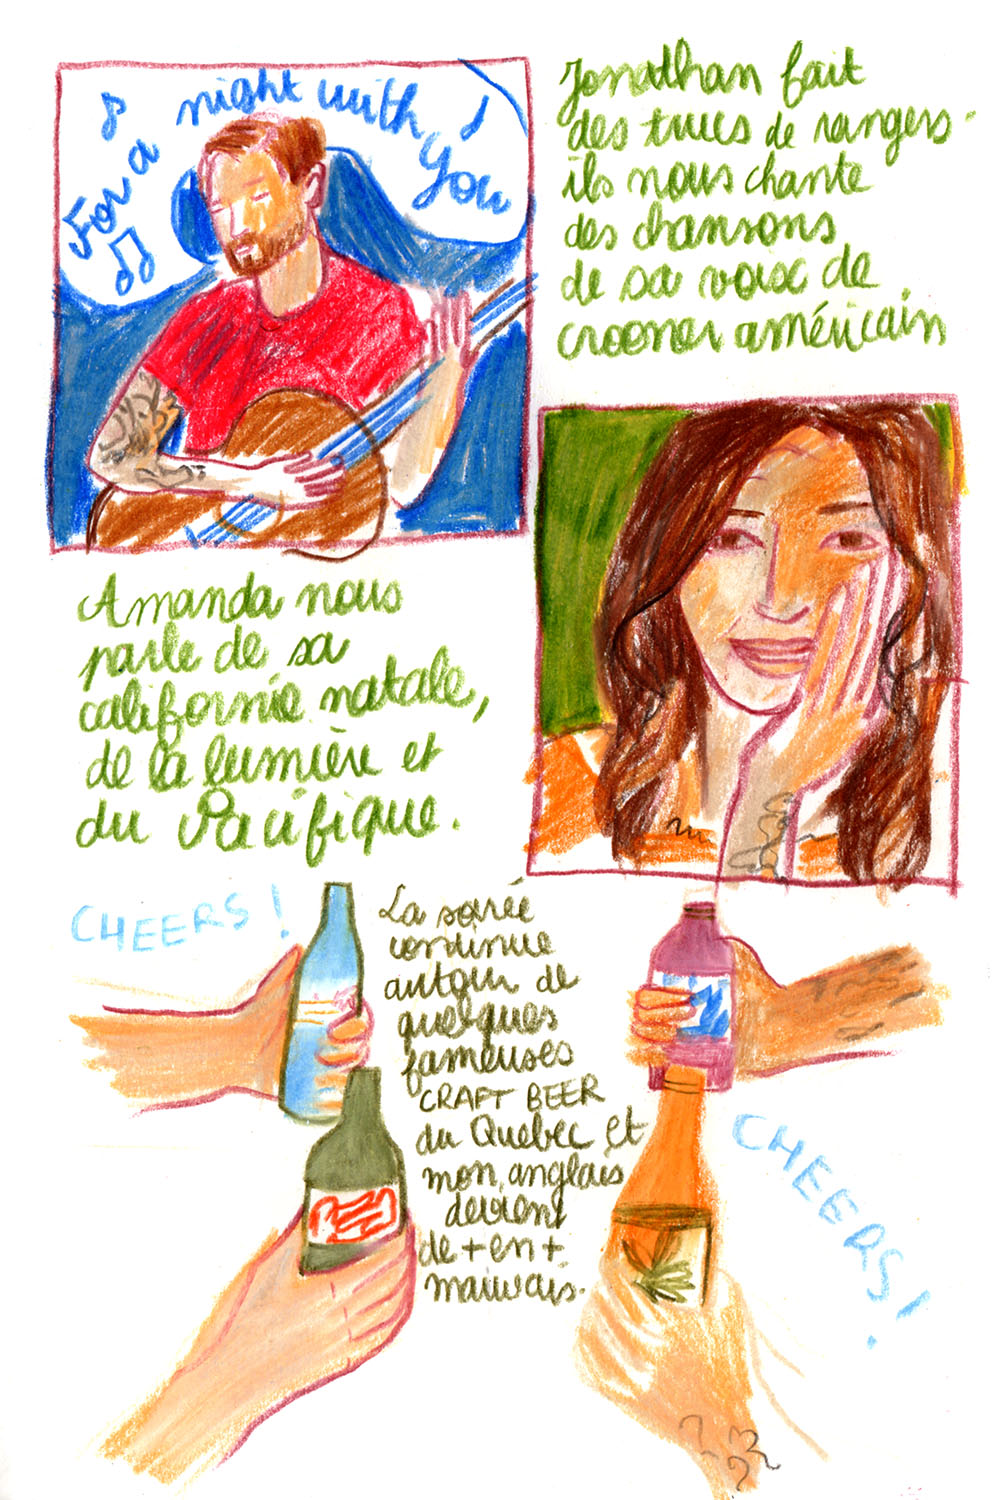 For a night with you
Jonathan fait
des trucs de rangers
ils nous chante
des chansons
de sa voix de
crooner américain
Amanda nous
parle de sa
californie natale,
de la lumière et
du Pacifique.
CHEERS !
La soirée
continue
autour de
quelques
fameuses
CRAFT BEER
du Quebec et
mon anglais
devient
de + en +
mauvais.
CHEERS !